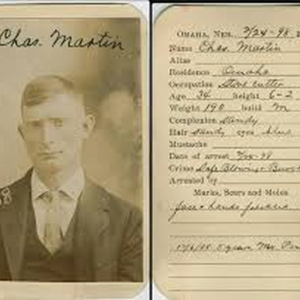 Chas. Martin
8
OMAHA, NEB. 2/24-98
Name Chas. Martin
Alias
Residence Omaha
Occupation Stone cutter
Age 34 height 6-2
Weight 190 build M
Complexion Sandy
Hair sandy eyes blue
Mustache
Date of arrest -98
Crime Safe Blowing &
Arrested by
Marks, Scars and Moles
face & hands freckled
5 years